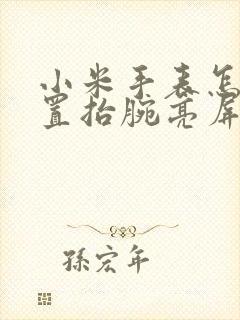 小米手表怎
置抬腕亮屏
孫宏年